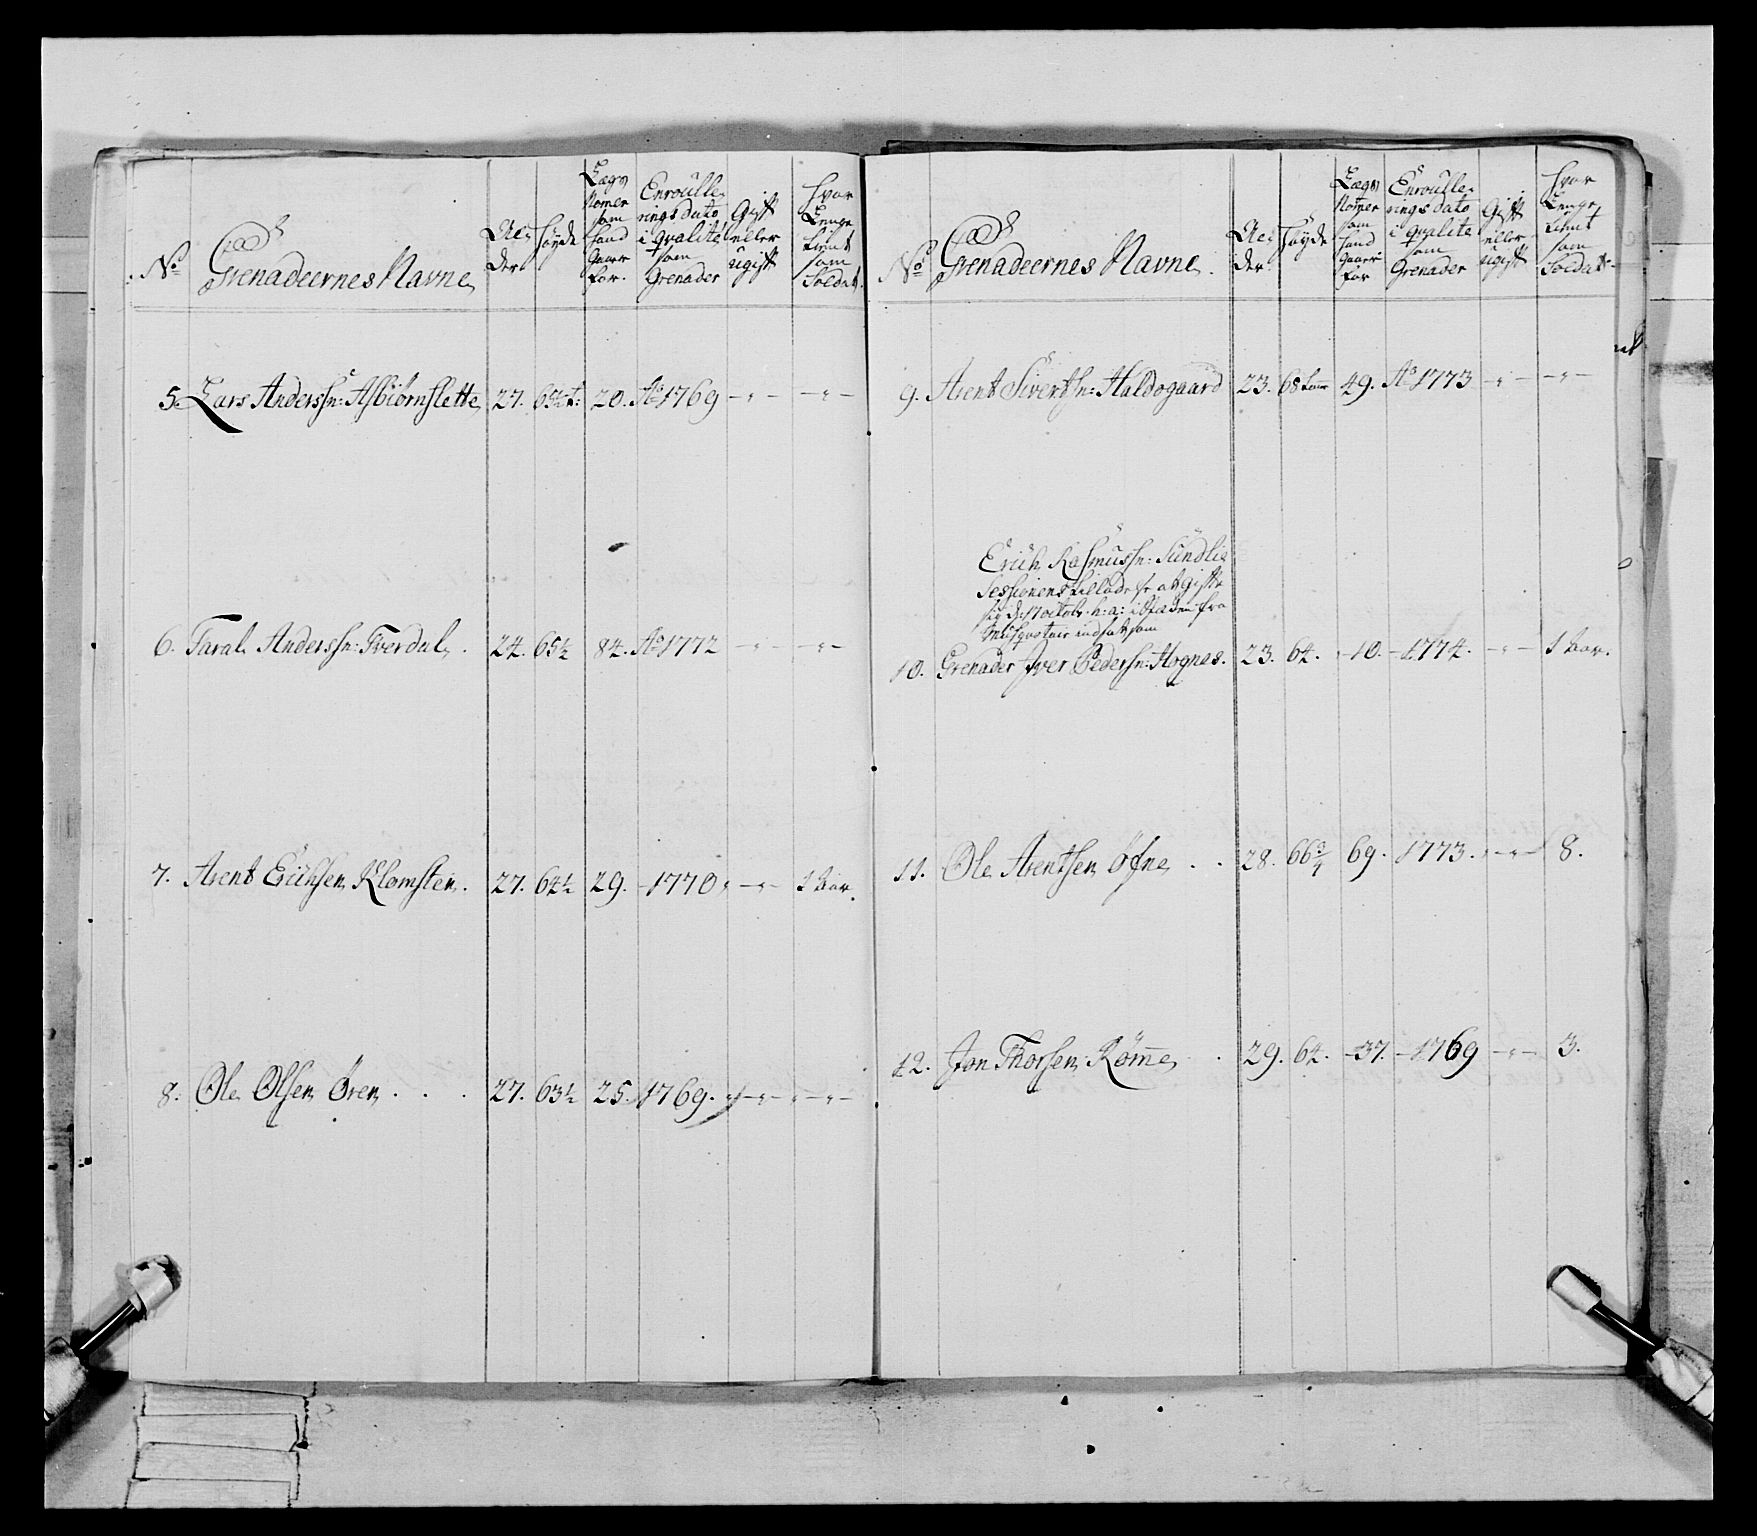 No
Grenadeernes Navne
Al:
der
Høyde
Lægs
Nomer
som
hand
staaer
for.
Enroulle-
rings dato
i qvalité
som
Grenader
Gift
eller
ugift
hvor
Lenge
tient
som
Soldat.
5. Lars Anderssn: Asbiørnslette 27. 20. Ao 1769 - " - - " -
6. Taral Anderssn: Tverdal. 24. 65½ 84. Ao 1772 - " - - " -
7. Arent Erichsen Klomsten. 27. 64½ 29. - 1770. - " - 1 Aar.
8. Ole Olsen Ören . . . 27. 63½ 25. 1769. - " - - " -
No
Grenadeernes Navne.
Al:
der.
Høyde
Lægs
Nomer
som
hand
staaer
for
Enroulle-
rings dato
i qvalite
som
Grenader
Gift
eller
ugift
hvor
Lenge
tient
som
Soldat.
9. Arent Sivertsn: Haldogaard 23. 68 49. Ao 1773 - " - - " -
Erich Rasmussn: Sundlie
Sessionens tillade se at gifte
sig d: 17 octobr. h: a: i Stæden fra
Musqvoteer indsat som
10. Grenader Iver Pedersn: Hognæs. 23. 64. - 10. - 1774. - " - 1 Aar.
11. Ole Arentsen Öfne . . 28. 66¾ 69. 1773. - " - 8.
12. Jon Thorsen Röm̅e . . 29. 64. - 37. - 1769 - " - 3.